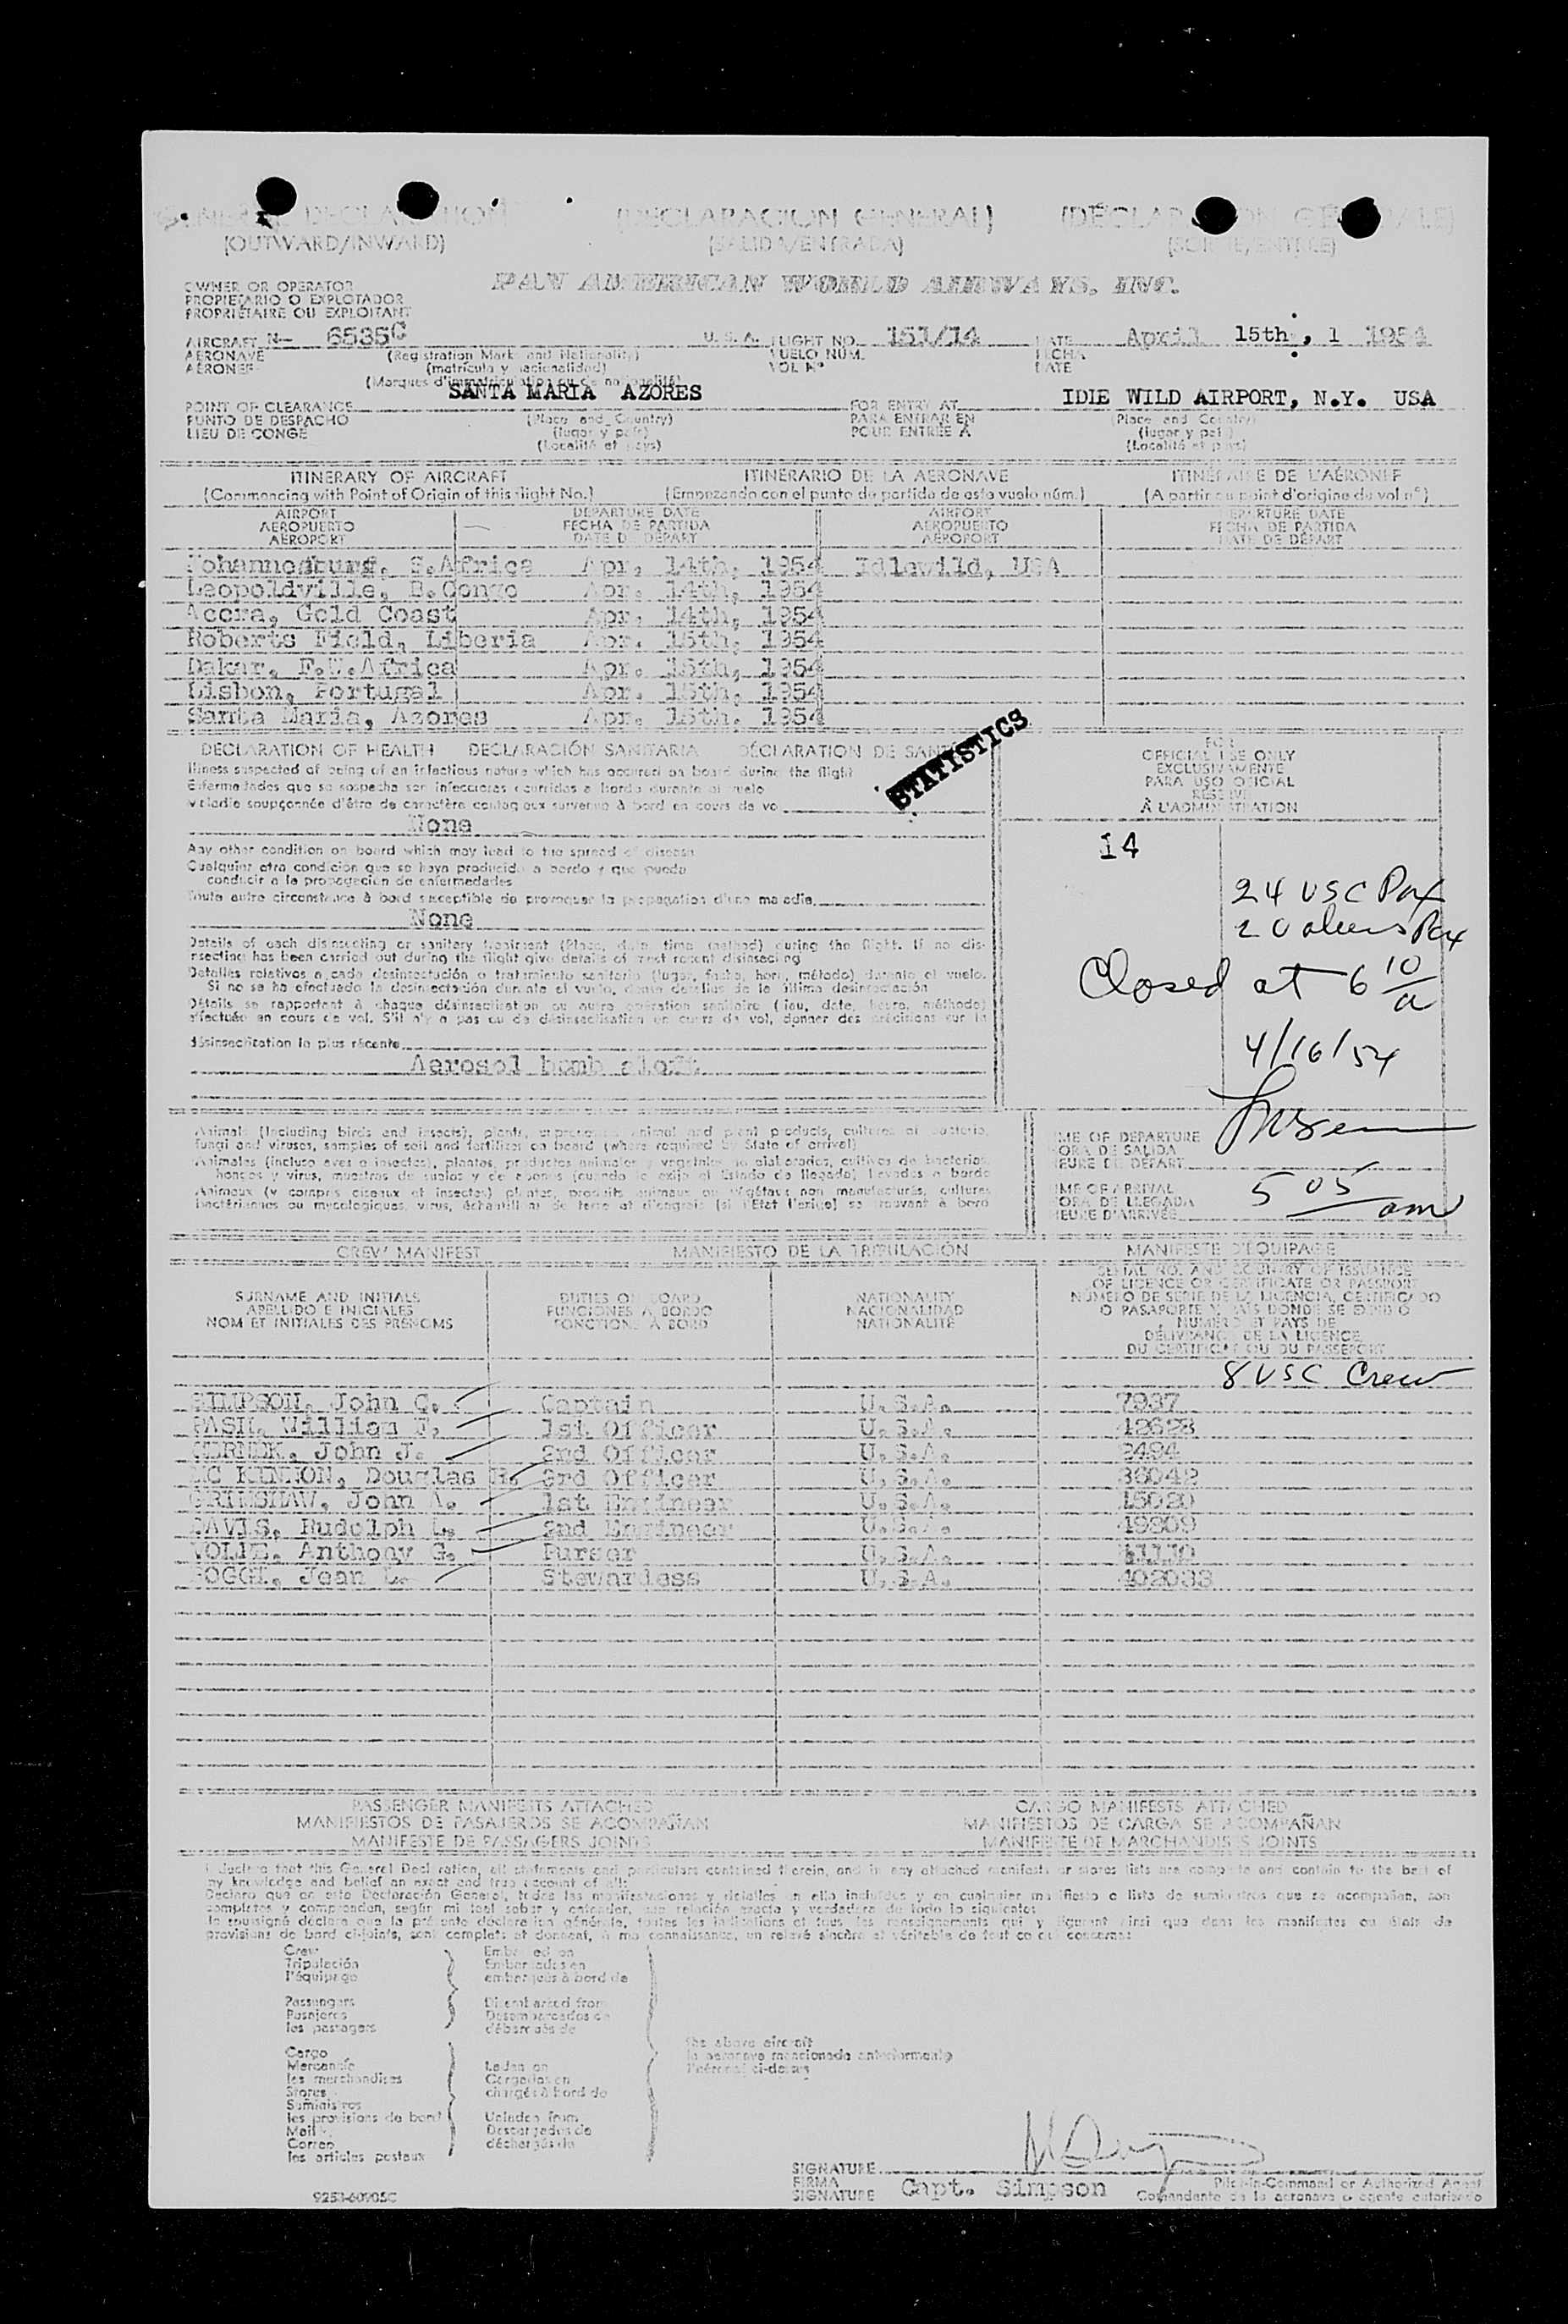 GENERAL DECLARATION (DECLARACION GENERAL) (DÉCLARATION GÉNÉRALE)
(OUTWARD/INWARD) (SALIDA/ENTRADA) (SORTIE/ENTRÉE)
OWNER OR OPERATOR PAN AMERICAN WORLD AIRWAYS, INC.
PROPIETARIO O EXPLOTADOR
PROPRIÉTAIRE OU EXPLOITANT
AIRCRAFT N- 6535C U.S.A. FLIGHT NO. 151/14 DATE April 15th, 1 1954
AERONAVE (Registration Mark and Nationality) VUELO NUM. FECHA
AÉRONEF (matrícula y nacionalidad) VOL Nº DATE
(Marques d'immatriculation ou de nationalité)
SANTA MARIA AZORES IDIE WILD AIRPORT, N.Y. USA
POINT OF CLEARANCE FOR ENTRY AT
PUNTO DE DESPACHO (Place and Country) PARA ENTRAR EN (Place and Country)
LIEU DE CONGÉ (lugar y país) POUR ENTRÉE À (lugar y país)
(Localité et pays) (Localité et pays)
ITINERARY OF AIRCRAFT ITINERARIO DE LA AERONAVE ITINÉRAIRE DE L'AÉRONEF
(Commencing with Point of Origin of this flight No.) (Empezando con el punto de partida de este vuelo núm.) (A partir du point d'origine du vol nº)
AIRPORT DEPARTURE DATE AIRPORT DEPARTURE DATE
AEROPUERTO FECHA DE PARTIDA AEROPUERTO FECHA DE PARTIDA
AÉROPORT DATE DE DÉPART AÉROPORT DATE DE DÉPART
Johannesburg, S.Africa Apr. 14th, 1954 Idlewild, USA
Leopoldville, B.Congo Apr. 14th, 1954
Accra, Gold Coast Apr. 14th, 1954
Roberts Field, Liberia Apr. 15th, 1954
Dakar, F.W.Africa Apr. 15th, 1954
Lisbon, Portugal Apr. 15th, 1954
Santa Maria, Azores Apr. 15th. 1954
STATISTICS
DECLARATION OF HEALTH DECLARACIÓN SANITARIA DÉCLARATION DE SANTÉ
Illness suspected of being of an infectious nature which has occurred on board during the flight
Enfermedades que se sospecha son infecciosas ocurridas a bordo durante el vuelo
Maladie soupçonnée d'être de caractère contagieux survenue à bord en cours de vol
None
Any other condition on board which may lead to the spread of disease
Cualquier otra condición que se haya producido a bordo y que pueda
conducir a la propagación de enfermedades
Toute autre circonstance à bord susceptible de provoquer la propagation d'une maladie
None
Details of each disinsecting or sanitary treatment (Place, date, time, method) during the flight. If no dis-
insecting has been carried out during the flight give details of most recent disinsecting
Detalles relativos a cada desinsectación o tratamiento sanitario (lugar, fecha, hora, método) durante el vuelo.
Si no se ha efectuado la desinsectación durante el vuelo, dense detalles de la última desinsectación
Détails se rapportant à chaque désinsectisation ou autre opération sanitaire (lieu, date, heure, méthode)
effectuée en cours de vol. S'il n'y a pas eu de désinsectisation en cours de vol, donner des précisions sur la
désinsectisation la plus récente
Aerosol bomb aloft
FOR
OFFICIAL USE ONLY
EXCLUSIVAMENTE
PARA USO OFICIAL
RÉSERVÉ
À L'ADMINISTRATION
14
24 USC Pax
20 aliens Pax
Closed at 6 10/a
4/16/54
Animals (including birds and insects), plants, unprocessed animal and plant products, cultures of bacteria,
fungi and viruses, samples of soil and fertilizer on board (where required by State of arrival)
Animales (incluso aves e insectos), plantas, productos animales y vegetales no elaborados, cultivos de bacterias,
hongos y virus, muestras de suelos y de abonos (cuando lo exija el Estado de llegada) llevados a bordo
Animaux (y compris oiseaux et insectes) plantes, produits animaux ou végétaux non manufacturés, cultures
bactériennes ou mycologiques, virus, échantillons de terre et d'engrais (si l'État l'exige) se trouvant à bord
TIME OF DEPARTURE
HORA DE SALIDA
HEURE DE DÉPART
TIME OF ARRIVAL 5 05 am
HORA DE LLEGADA
HEURE D'ARRIVÉE
CREW MANIFEST MANIFIESTO DE LA TRIPULACIÓN MANIFESTE D'ÉQUIPAGE
SURNAME AND INITIALS DUTIES ON BOARD NATIONALITY SERIAL NO. AND COUNTRY OF ISSUANCE
APELLIDO E INICIALES FUNCIONES A BORDO NACIONALIDAD OF LICENCE OR CERTIFICATE OR PASSPORT
NOM ET INITIALES DES PRÉNOMS FONCTIONS À BORD NATIONALITÉ NÚMERO DE SERIE DE LA LICENCIA, CERTIFICADO
O PASAPORTE Y PAÍS DONDE SE EXPIDIÓ
NUMÉRO ET PAYS DE
DÉLIVRANCE DE LA LICENCE
DU CERTIFICAT OU DU PASSEPORT
8 USC Crew
SIMPSON, John C. Captain U.S.A. 7937
CASH, William F. 1st Officer U.S.A. 42628
John J. 2nd Officer U.S.A. 2494
MC KINNON, Douglas H. 3rd Officer U.S.A. 36042
GRIMSHAW, John A. 1st Engineer U.S.A. 15020
DAVIS, Rudolph L. 2nd Engineer U.S.A. 49809
Anthony G. Purser U.S.A.
Jean L. Stewardess U.S.A. 402033
PASSENGER MANIFESTS ATTACHED CARGO MANIFESTS ATTACHED
MANIFIESTOS DE PASAJEROS SE ACOMPAÑAN MANIFIESTOS DE CARGA SE ACOMPAÑAN
MANIFESTE DE PASSAGERS JOINTS MANIFESTE DE MARCHANDISES JOINTS
I declare that this General Declaration, all statements and particulars contained therein, and in any attached manifests or stores lists are complete and contain to the best of
my knowledge and belief an exact and true account of all:
Declaro que en esta Declaración General, todas las manifestaciones y detalles en ella incluídos y en cualquier manifiesto o lista de suministros que se acompañan, son
completos y comprenden, según mi leal saber y entender, una relación exacta y verdadera de todo lo siguiente:
Je soussigné déclare que la présente déclaration générale, toutes les indications et tous les renseignements qui y figurent ainsi que dans les manifestes ou états de
provisions de bord ci-joints, sont complets et donnent, à ma connaissance, un relevé sincère et véritable de tout ce qui concerne:
Crew Embarked on
Tripulación Embarcados en
l'équipage embarqués à bord de
Passengers Disembarked from
Pasajeros Desembarcados de
les passagers débarqués de
the above aircraft
Cargo la aeronave mencionada anteriormente
Mercancía Laden on l'aéronef ci-dessus
les marchandises Cargados en
Stores chargés à bord de
Suministros
les provisions de bord Unladen from
Mail Descargados de
Correo déchargés de
les articles postaux
SIGNATURE
FIRMA Capt. Simpson Pilot-in-Command or Authorized Agent
SIGNATURE Comandante de la aeronave o agente autorizado
9253-60905C